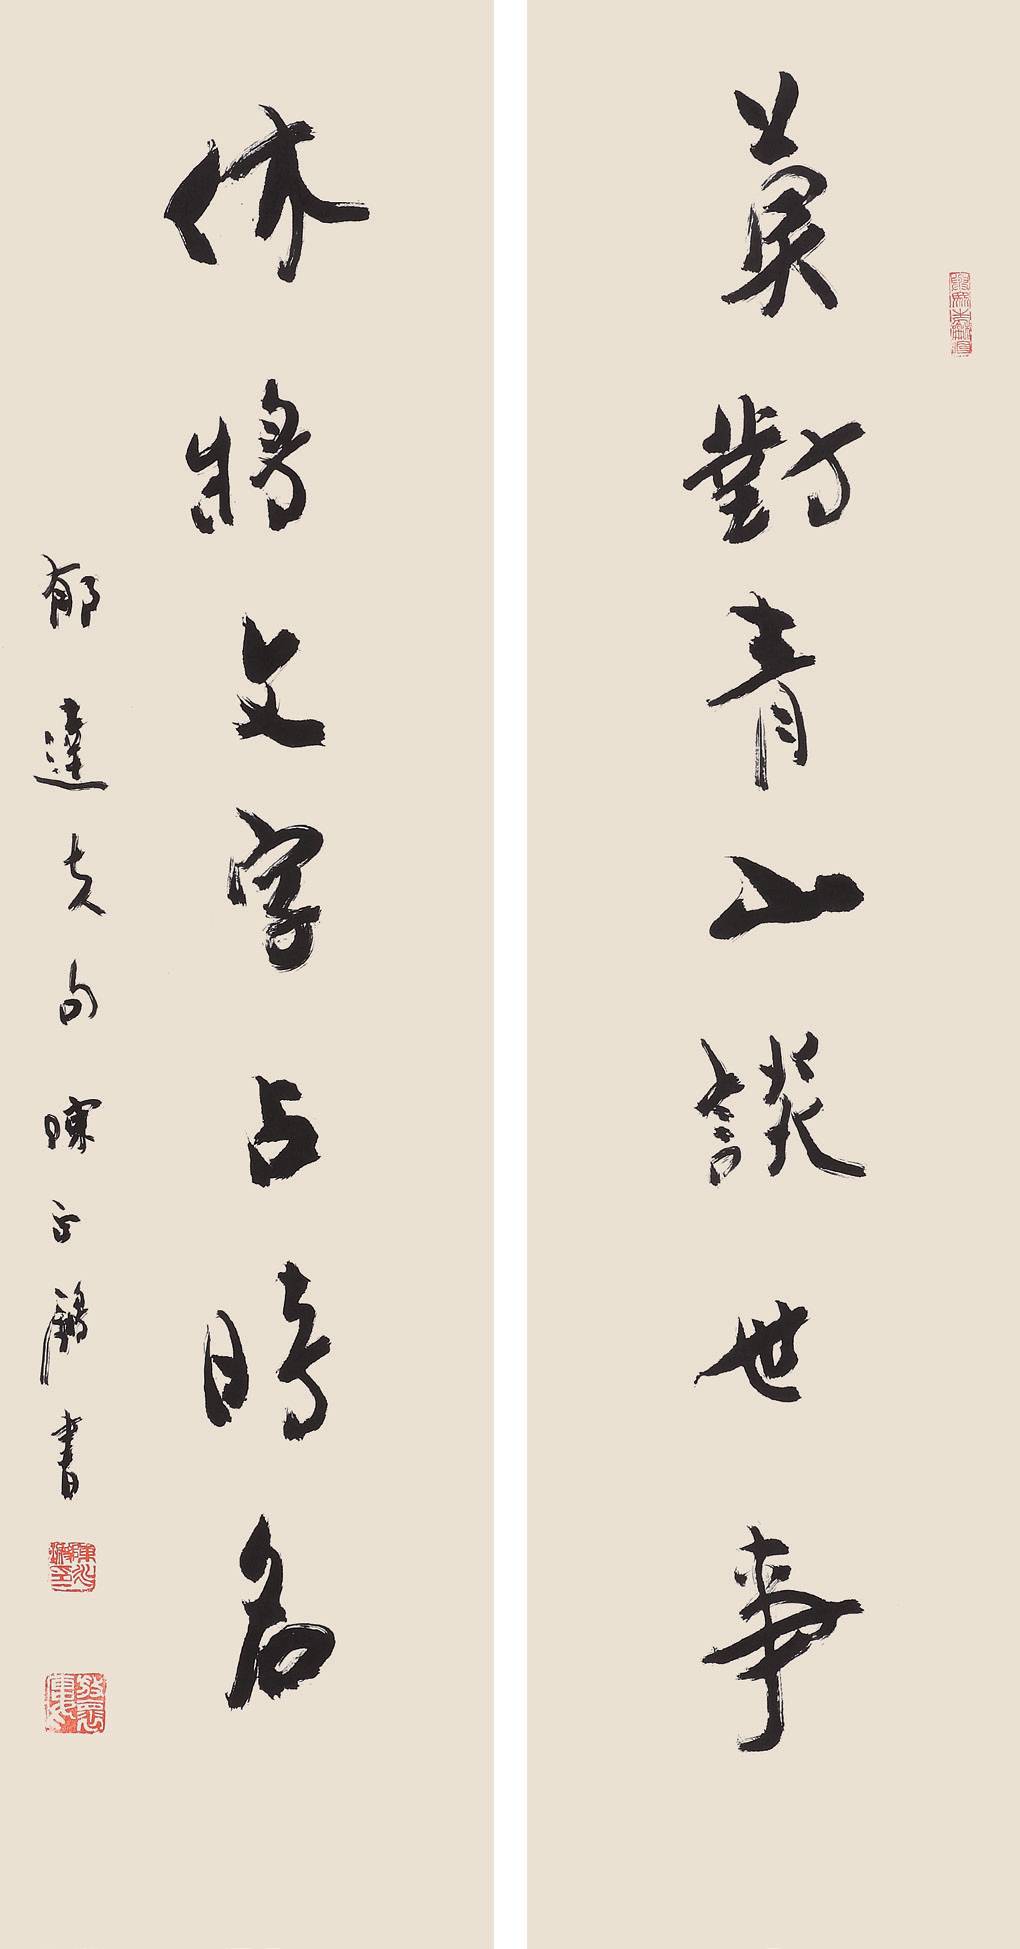 莫對青山談世事
休將文字占時名
郁達夫句陳正濂書